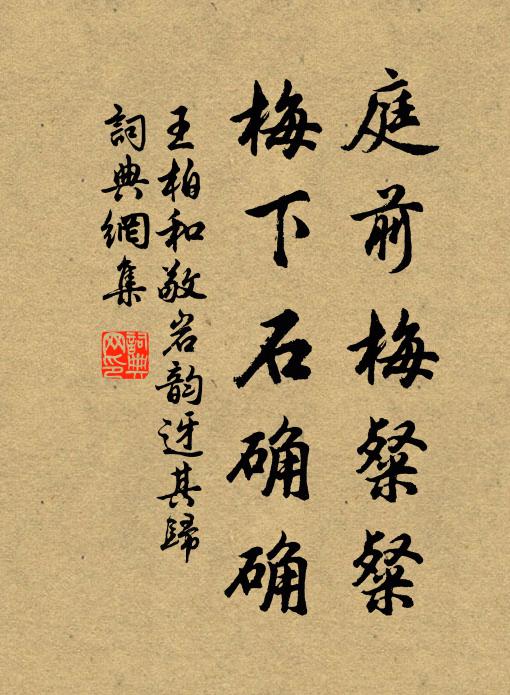 庭前梅粲粲
梅下石确确
王柏和敬岩韵迓其歸
詞典網集
詞典网印